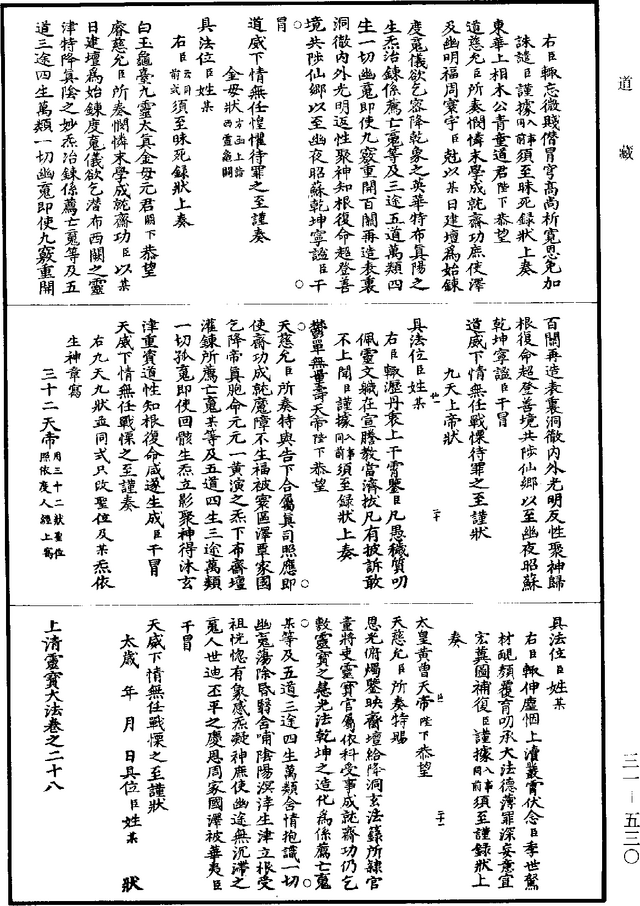 道藏
右臣輒忘微賤僭冒穹高尚祈寬恩免加
誅譴臣謹據入事同前須至昧死録狀上奏
東華上相木公青童道君陛下恭望
道慈允臣所奏憫憐末學成就齋功庶使澤
及幽明福周寰宇臣尅以某日建壇為始鍊
度䰟儀欲乞容降乾象之英華特布真陽之
生炁冶鍊係薦亡䰟等及三途五道萬類四
生一切幽䰟即使九竅重開百關再造表裏
洞徹内外光明返性聚神知根復命超登善
境共陟仙鄉以至幽夜昭蘇乾坤寧謐臣干
冒
道威下情無任惶懼待罪之至謹奏
金母狀方函上詣西靈龜闕
具法位臣姓某
右臣云同前式須至昧死録狀上奏
白玉龜臺九靈太真金母元君陛下恭望
睿慈允臣所奏憫憐末學成就齋功臣以某
日建壇為始鍊度䰟儀欲乞潛布西闕之靈
津特降真陰之妙炁冶鍊係薦亡䰟等及五
道三途四生萬類一切幽䰟即使九竅重開
百關再造表裏洞徹内外光明反性聚神歸
根復命超登善境共陟仙鄉以至幽夜昭蘇
乾坤寧謐臣干冒
道威下情無任戰慄待罪之至謹狀
九天上帝狀
具法位臣姓某
右臣輒瀝丹衷上干霄鑒臣凡愚穢質叨
佩靈文職在宣騰教當濟拔凡有披訴敢
不上聞臣謹據入事同前須至録狀上奏
鬱單無量壽天帝陛下恭望
天慈允臣所奏特與告下合屬真司照應即
使齋功成就魔障不生福被寰區澤覃家國
乞降帝真胞命元元一黄演之炁下布齋壇
灌鍊所薦亡䰟某等及五道四生三途萬類
一切孤䰟即使回骸生炁立影聚神得沐玄
津重賓道性知根復命咸遂生成臣干冒
天威下情無任戰慄之至謹奏
右九天九狀並同式只改聖位及某炁依
生神章寫
三十二天帝用三十二狀聖位照依度人經上寫
具法位臣姓某
右臣輒伸塵悃上瀆叢霄伏念臣季世駑
材靦顏覆育叨承大法德薄罪深妄意宜
宏冀圖補復臣謹據入事同前須至謹録狀上
奏
太皇黄曾天帝陛下恭望
天慈允臣所奏特賜
恩光俯燭鑒映齋壇給降洞玄法籙所隸官
童將吏靈寶官屬依科受事成就齋功仍乞
敷靈寶之慈光法乾坤之造化為係薦亡䰟
某等及五道三途四生萬類含情抱識一切
幽䰟蕩除昏翳含哺陰陽溟涬生津立根受
祖恍惚有象感炁凝神庶使幽途無沉滯之
䰟人世迪丕平之慶恩周家國澤被華夷臣
干冒
天威下情無任戰慄之至謹狀
太歲年月日具位臣姓某狀
上清靈寶大法卷之二十八
三一—五三〇